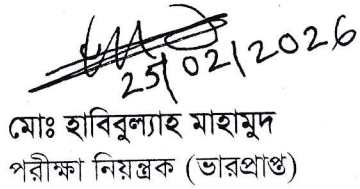 25/02/2026
মোঃ হাবিবুল্যাহ মাহামুদ
পরীক্ষা নিয়ন্ত্রক (ভারপ্রাপ্ত)